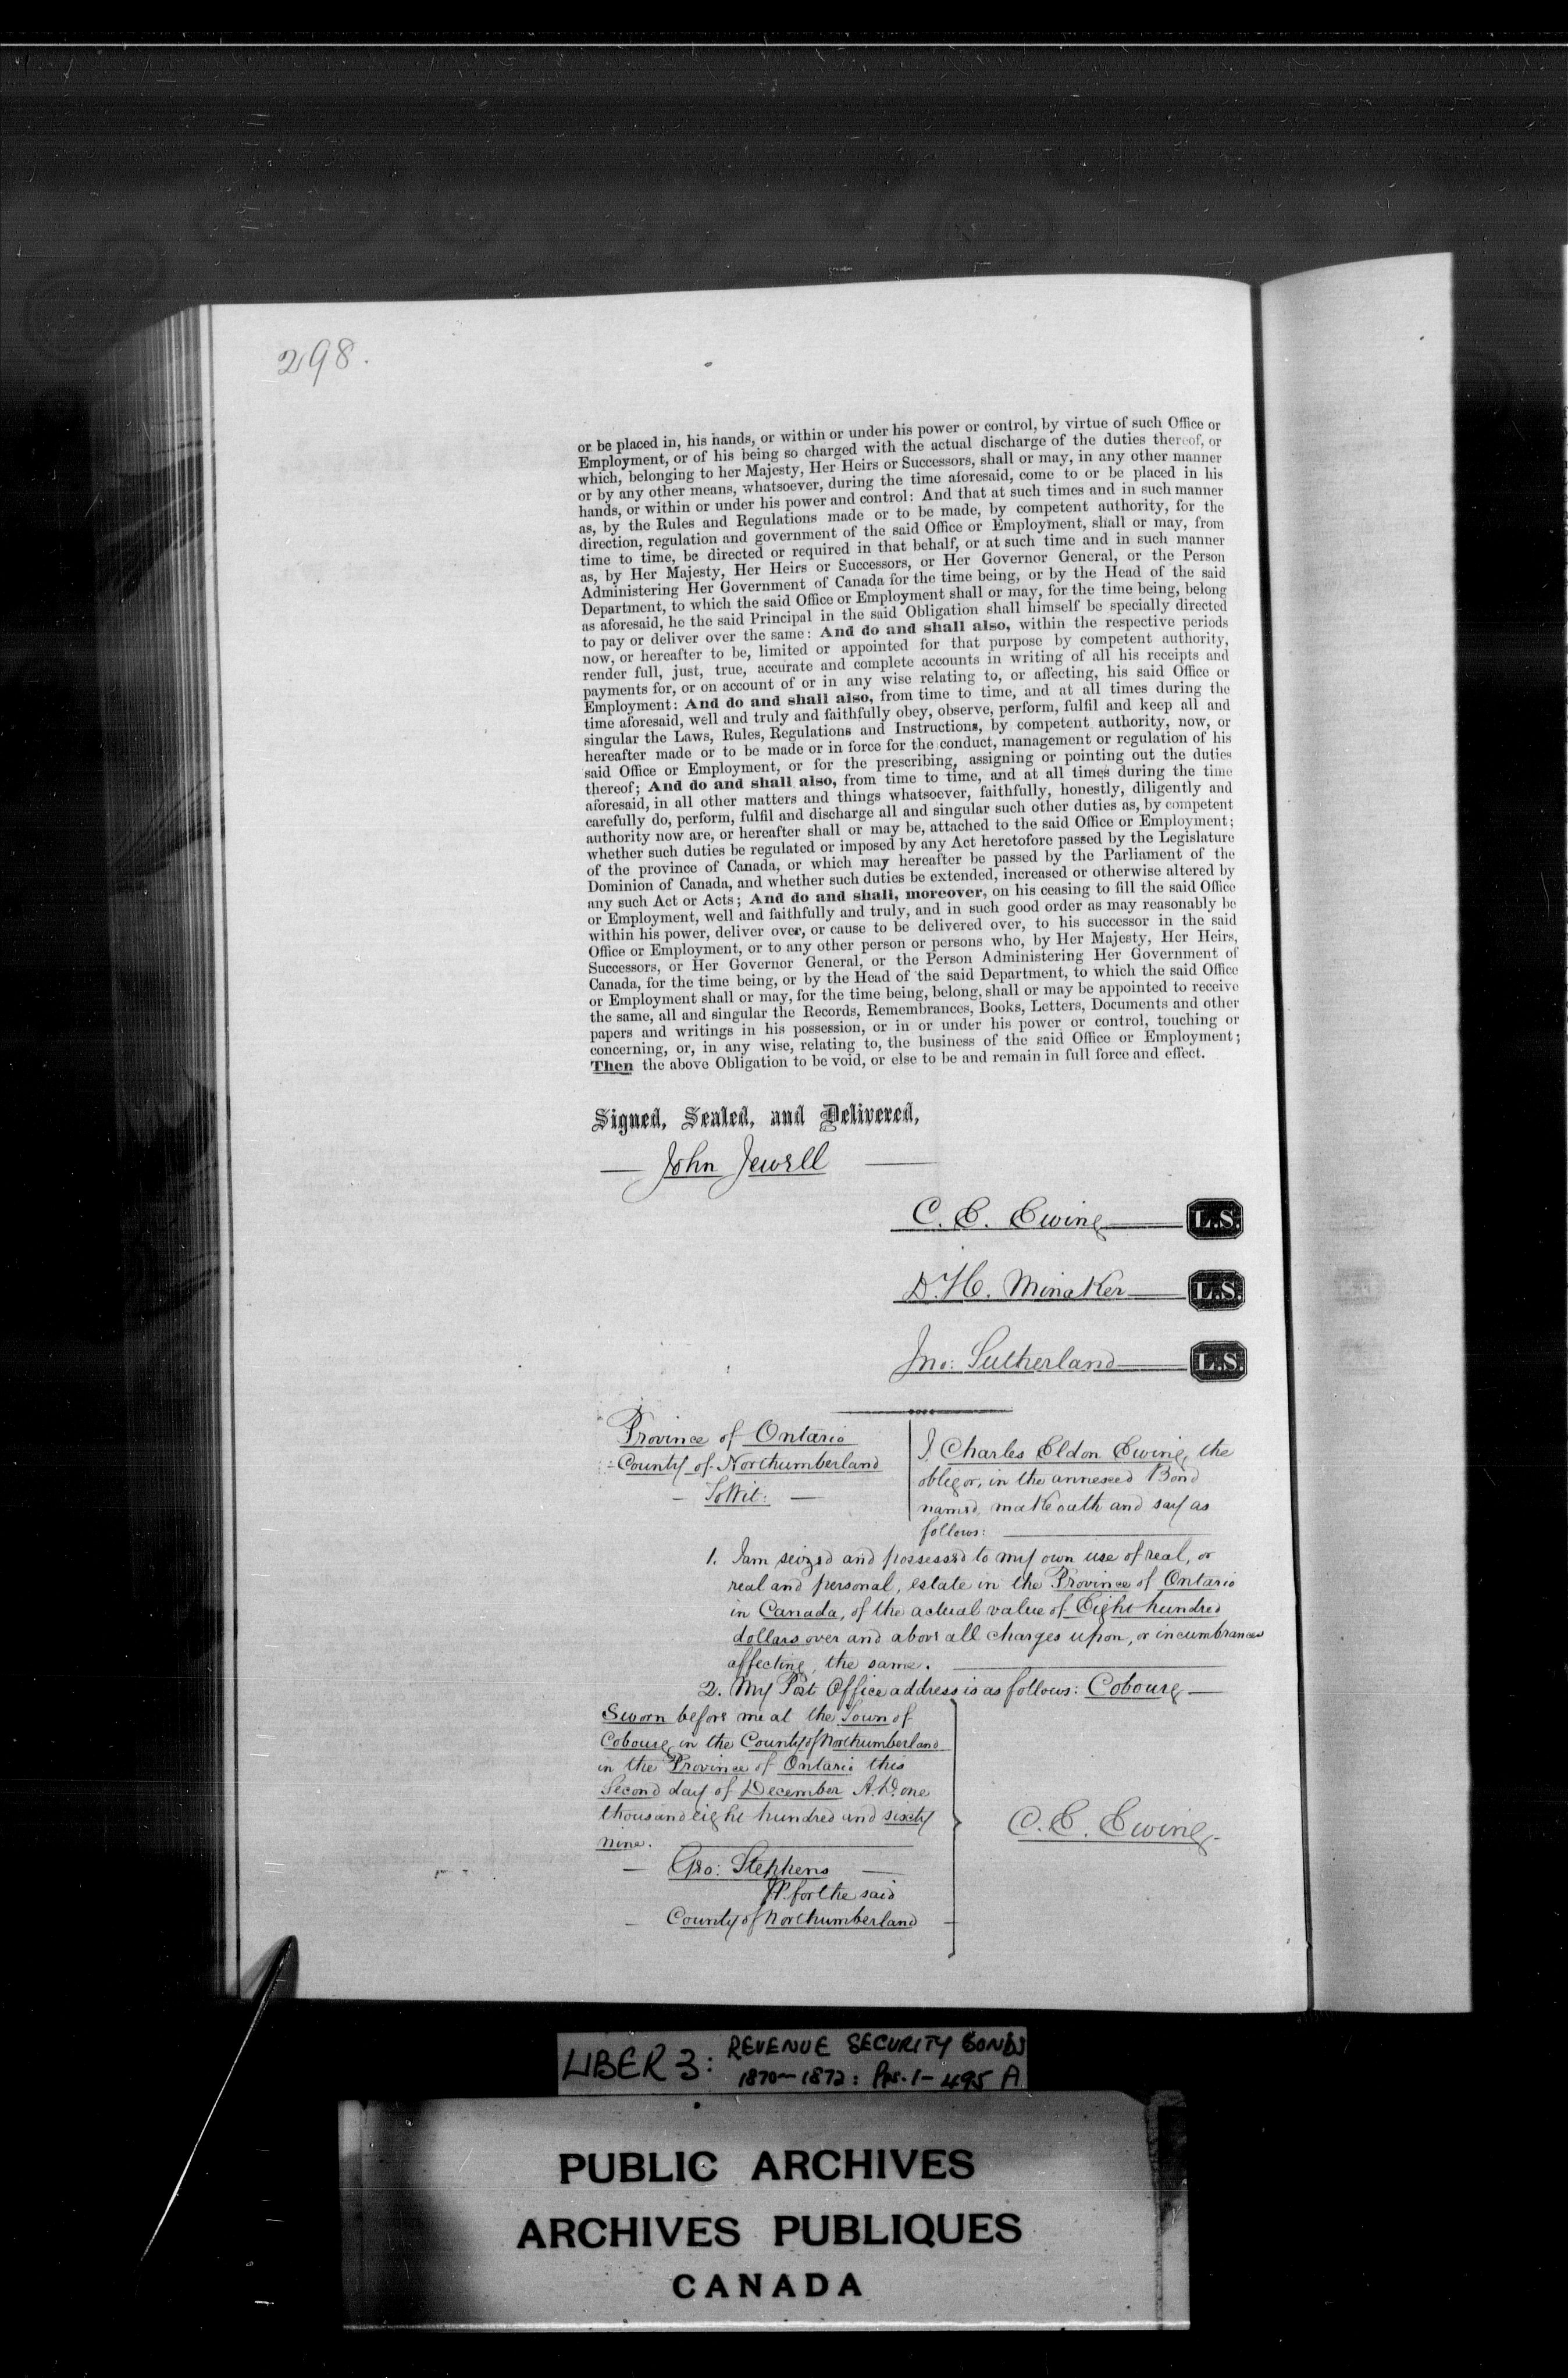 298.
or be placed in, his hands, or within or under his power or control, by virtue of such Office or
Employment, or of his being so charged with the actual discharge of the duties thereof, or
which, belonging to her Majesty, Her Heirs or Successors, shall or may, in any other manner
or by any other means, whatsoever, during the time aforesaid, come to or be placed in his
hands, or within or under his power and control: And that at such times and in such manner
as, by the Rules and Regulations made or to be made, by competent authority, for the
direction, regulation and government of the said Office or Employment, shall or may, from
time to time, be directed or required in that behalf, or at such time and in such manner
as, by Her Majesty, Her Heirs or Successors, or Her Governor General, or the Person
Administering Her Government of Canada for the time being, or by the Head of the said
Department, to which the said Office or Employment shall or may, for the time being, belong
as aforesaid, he the said Principal in the said Obligation shall himself be specially directed
to pay or deliver over the same: And do and shall also, within the respective periods
now, or hereafter to be, limited or appointed for that purpose by competent authority,
render full, just, true, accurate and complete accounts in writing of all his receipts and
payments for, or on account of or in any wise relating to, or affecting, his said Office or
Employment: And do and shall also, from time to time, and at all times during the
time aforesaid, well and truly and faithfully obey, observe, perform, fulfil and keep all and
singular the Laws, Rules, Regulations and Instructions, by competent authority, now, or
hereafter made or to be made or in force for the conduct, management or regulation of his
said Office or Employment, or for the prescribing, assigning or pointing out the duties
thereof; And do and shall also, from time to time, and at all times during the time
aforesaid, in all other matters and things whatsoever, faithfully, honestly, diligently and
carefully do, perform, fulfil and discharge all and singular such other duties as, by competent
authority now are, or hereafter shall or may be, attached to the said Office or Employment;
whether such duties be regulated or imposed by any Act heretofore passed by the Legislature
of the province of Canada, or which may hereafter be passed by the Parliament of the
Dominion of Canada, and whether such duties be extended, increased or otherwise altered by
any such Act or Acts; And do and shall, moreover, on his ceasing to fill the said Office
or Employment, well and faithfully and truly, and in such good order as may reasonably be
within his power, deliver over, or cause to be delivered over, to his successor in the said
Office or Employment, or to any other person or persons who, by Her Majesty, Her Heirs,
Successors, or Her Governor General, or the Person Administering Her Government of
Canada, for the time being, or by the Head of the said Department, to which the said Office
or Employment shall or may, for the time being, belong, shall or may be appointed to receive
the same, all and singular the Records, Remembrances, Books, Letters, Documents and other
papers and writings in his possession, or in or under his power or control, touching or
concerning, or, in any wise, relating to, the business of the said Office or Employment;
Then the above Obligation to be void, or else to be and remain in full force and effect.
Signed, Sealed, and Delivered,
John Jewell
C. E. Ewing L.S.
D. H. Minaker L.S.
Jno: Sutherland L.S.
Province of Ontario
County of Northumberland
To Wit:
I, Charles Eldon Ewing, the
obligor, in the annexed Bond
named, make oath and say as
follows:
1. I am seized and possessed to my own use of real, or
real and personal, estate in the Province of Ontario
in Canada, of the actual value of Eight hundred
dollars over and above all charges upon, or incumbrances
affecting, the same.
2. My Post Office address is as follows: Cobourg
Sworn before me at the Town of
Cobourg in the County of Northumberland
in the Province of Ontario this
Second day of December A.D. one
thousand eight hundred and sixty
nine.
Geo: Stephens
JP. for the said
County of Northumberland
C. E. Ewing
LIBER 3: REVENUE SECURITY BONDS
1870-1872: Pps. 1-495 A
PUBLIC ARCHIVES
ARCHIVES PUBLIQUES
CANADA